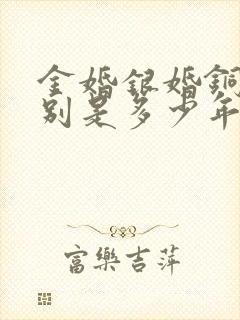 金婚銀婚銅
別是多少年
富樂吉萍